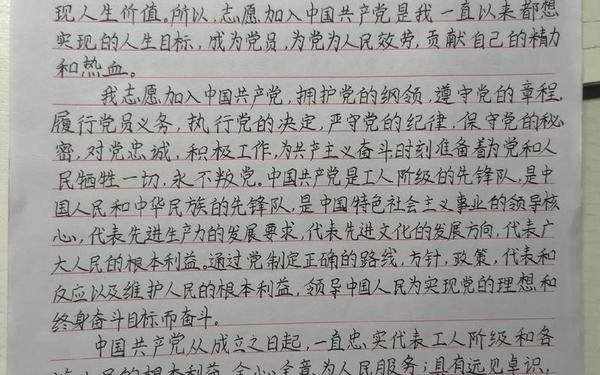 现人生价值。所以,志愿加入中国共产党是我一直以来都想
实现的人生目标,成为党员,为党为人民效劳,贡献自己的精力
和热血。
我志愿加入中国共产党,拥护党的纲领,遵守党的章程,
履行党员义务,执行党的决定,严守党的纪律,保守党的秘
密,对党忠诚,积极工作,为共产主义奋斗时刻准备着为党和人
民牺牲一切,永不叛党。中国共产党是工人阶级的先锋队,是中
国人民和中华民族的先锋队,是中国特色社会主义事业的领导核
心,代表先进生产力的发展要求,代表先进文化的发展方向,代表广
大人民的根本利益。通过党制定正确的路线,方针,政策,代表和
反应以及维护人民的根本利益,领导中国人民为实现党的理想和
终身奋斗目标而奋斗。
中国共产党从成立之日起,一直忠实代表工人阶级和各
人民的根本利益,全心全意为人民服务;具有远见卓识,